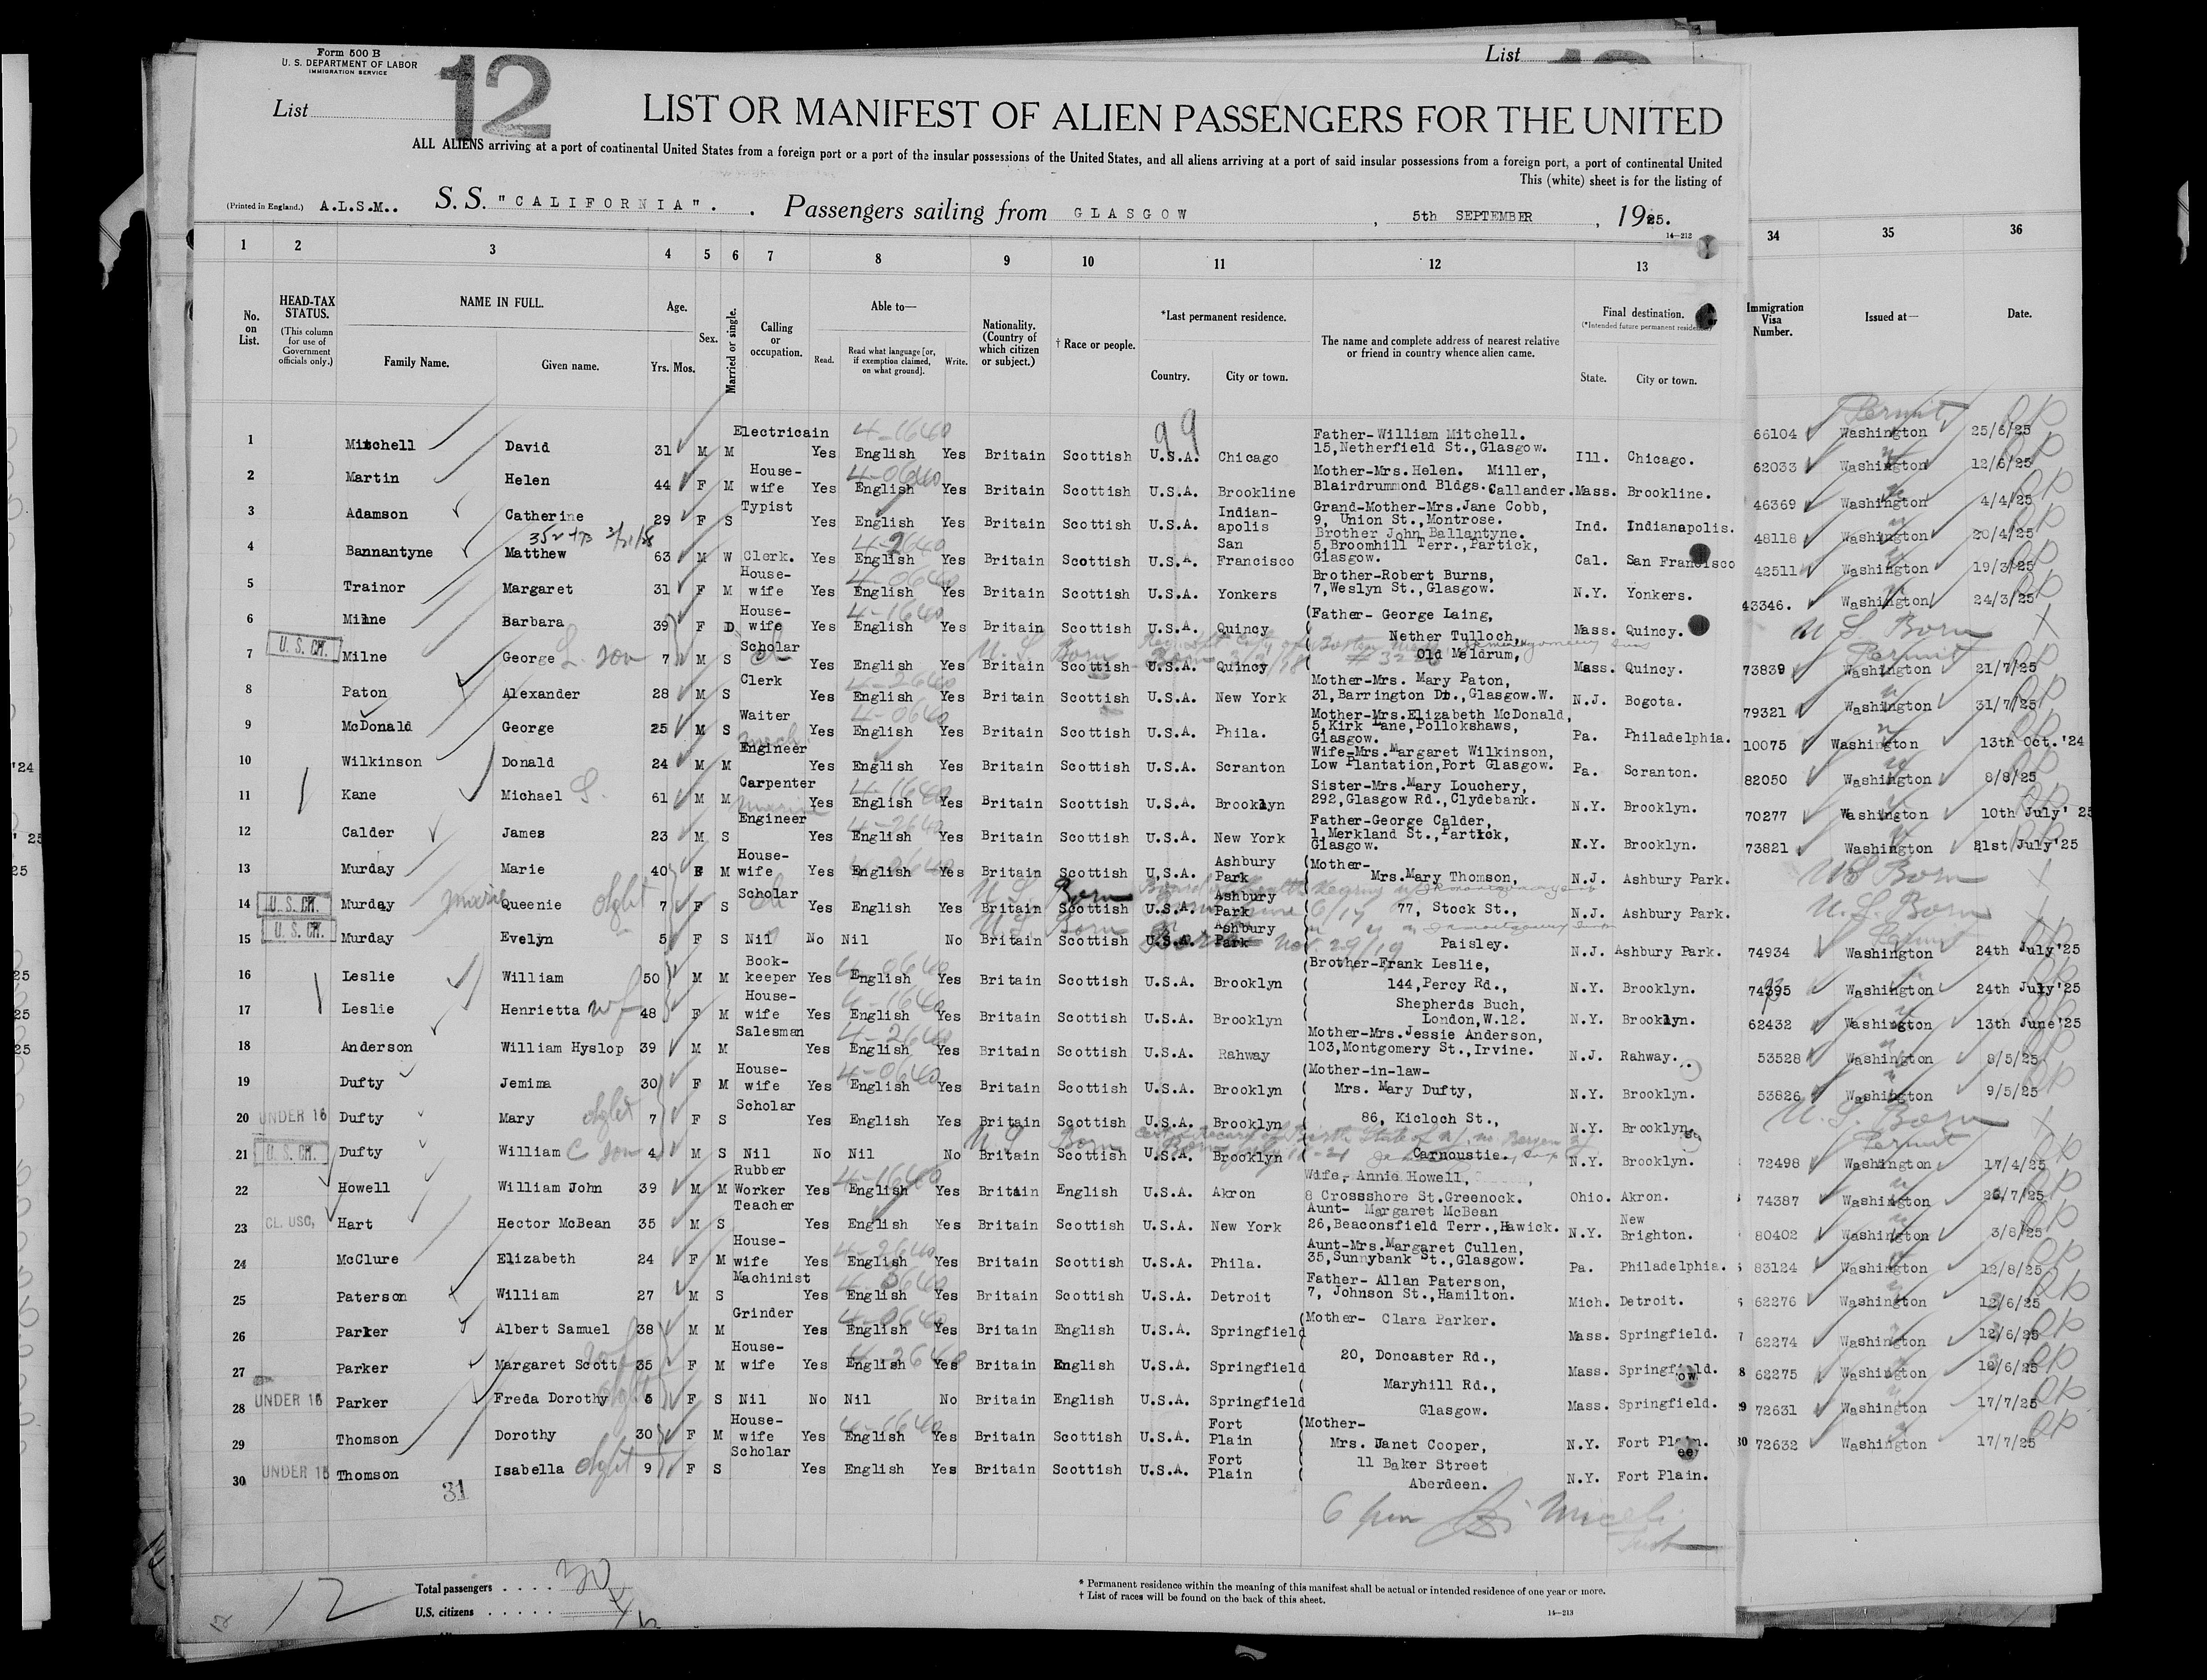 Form 500 B
U. S. DEPARTMENT OF LABOR
IMMIGRATION SERVICE
List
12
List
LIST OR MANIFEST OF ALIEN PASSENGERS FOR THE UNITED
ALL ALIENS arriving at a port of continental United States from a foreign port or a port of the insular possessions of the United States, and all aliens arriving at a port of said insular possessions from a foreign port, a port of continental United
This (white) sheet is for the listing of
(Printed in England.) A.L.S.M.. S. S. "CALIFORNIA". Passengers sailing from GLASGOW, 5th SEPTEMBER, 1925.
14-213
1 2 3 4 5 6 7 8 9 10 11 12 13 34 35 36
No. on List.
HEAD-TAX STATUS.
(This column for use of Government officials only.)
NAME IN FULL.
Family Name. Given name.
Age.
Yrs. Mos.
Sex.
Married or single.
Calling or occupation.
Able to—
Read. Read what language [or, if exemption claimed, on what ground]. Write.
Nationality. (Country of which citizen or subject.)
† Race or people.
*Last permanent residence.
Country. City or town.
The name and complete address of nearest relative or friend in country whence alien came.
Final destination.
(*Intended future permanent residence)
State. City or town.
Immigration Visa Number. Issued at— Date.
99
Permit
1 Mitchell David 31 M M Electricain Yes English Yes Britain Scottish U.S.A. Chicago Father-William Mitchell. 15,Netherfield St.,Glasgow. Ill. Chicago. 66104 Washington 25/6/25
2 Martin Helen 44 F M House-wife Yes English Yes Britain Scottish U.S.A. Brookline Mother-Mrs.Helen. Miller, Blairdrummond Bldgs.Callander. Mass. Brookline. 62033 Washington 12/6/25
3 Adamson Catherine 29 F S Typist Yes English Yes Britain Scottish U.S.A. Indian-apolis Grand-Mother-Mrs.Jane Cobb, 9, Union St.,Montrose. Ind. Indianapolis. 46369 Washington 4/4/25
4 Bannantyne Matthew 63 M W Clerk. Yes English Yes Britain Scottish U.S.A. San Francisco Brother John Ballantyne. 5,Broomhill Terr.,Partick, Glasgow. Cal. San Francisco 48118 Washington 20/4/25
5 Trainor Margaret 31 F M House-wife Yes English Yes Britain Scottish U.S.A. Yonkers Brother-Robert Burns, 7,Weslyn St.,Glasgow. N.Y. Yonkers. 42511 Washington 19/3/25
6 Milne Barbara 39 F D House-wife Yes English Yes Britain Scottish U.S.A. Quincy (Father- George Laing, Mass. Quincy. 43346. Washington 24/3/25
U. S. CH.
7 Milne George L. son 7 M S Scholar Yes English Yes Britain Scottish U.S.A. Quincy Nether Tulloch, Old Meldrum, Mass. Quincy. U S Born
8 Paton Alexander 28 M S Clerk Yes English Yes Britain Scottish U.S.A. New York Mother-Mrs. Mary Paton, 31,Barrington Dr.,Glasgow.W. N.J. Bogota. 73839 Washington 21/7/25
9 McDonald George 25 M S Waiter Yes English Yes Britain Scottish U.S.A. Phila. Mother-Mrs.Elizabeth McDonald, 5,Kirk Lane,Pollokshaws, Glasgow. Pa. Philadelphia. 79321 Washington 31/7/25
10 Wilkinson Donald 24 M M Engineer Yes English Yes Britain Scottish U.S.A. Scranton Wife-Mrs.Margaret Wilkinson, Low Plantation,Port Glasgow. Pa. Scranton. 10075 Washington 13th Oct.'24
11 Kane Michael 61 M M Carpenter Yes English Yes Britain Scottish U.S.A. Brooklyn Sister-Mrs.Mary Louchery, 292,Glasgow Rd.,Clydebank. N.Y. Brooklyn. 82050 Washington 8/8/25
12 Calder James 23 M S Engineer Yes English Yes Britain Scottish U.S.A. New York Father-George Calder, 1,Merkland St.,Partick, Glasgow. N.Y. Brooklyn. 70277 Washington 10th July' 25
13 Murday Marie 40 F M House-wife Yes English Yes Britain Scottish U.S.A. Ashbury Park (Mother- Mrs.Mary Thomson, N.J. Ashbury Park. 73821 Washington 21st July'25
U. S. CH.
14 Murday Marie Queenie dght 7 F S Scholar Yes English Yes Britain Scottish U.S.A. Ashbury Park 77, Stock St., N.J. Ashbury Park. US Born
U. S. CH.
15 Murday Evelyn 5 F S Nil No Nil No Britain Scottish U.S.A. Ashbury Park Paisley. N.J. Ashbury Park. U.S. Born
16 Leslie William 50 M M Book-keeper Yes English Yes Britain Scottish U.S.A. Brooklyn (Brother-Frank Leslie, 144,Percy Rd., N.Y. Brooklyn. 74934 Washington 24th July'25
17 Leslie Henrietta wf 48 F M House-wife Yes English Yes Britain Scottish U.S.A. Brooklyn Shepherds Buch, London,W.12. N.Y. Brooklyn. 74395 Washington 24th July'25
18 Anderson William Hyslop 39 M M Salesman Yes English Yes Britain Scottish U.S.A. Rahway Mother-Mrs.Jessie Anderson, 103,Montgomery St.,Irvine. N.J. Rahway. 62432 Washington 13th June'25
19 Dufty Jemima 30 F M House-wife Yes English Yes Britain Scottish U.S.A. Brooklyn (Mother-in-law- Mrs. Mary Dufty, N.Y. Brooklyn. 53528 Washington 9/5/25
20 UNDER 16 Dufty Mary dght 7 F S Scholar Yes English Yes Britain Scottish U.S.A. Brooklyn 86, Kicloch St., N.Y. Brooklyn. 53826 Washington 9/5/25
21 U. S. CH. Dufty William C son 4 M S Nil No Nil No Britain Scottish U.S.A. Brooklyn Carnoustie. N.Y. Brooklyn. U. S. Born
22 Howell William John 39 M M Rubber Worker Yes English Yes Britain English U.S.A. Akron Wife,- Annie Howell, 8 Crossshore St.Greenock. Ohio. Akron. 72498 Washington 17/4/25
23 CL. USC, Hart Hector McBean 35 M S Teacher Yes English Yes Britain Scottish U.S.A. New York Aunt- Margaret McBean 26,Beaconsfield Terr.,Hawick. N.Y. New Brighton. 74387 Washington 26/7/25
24 McClure Elizabeth 24 F M House-wife Yes English Yes Britain Scottish U.S.A. Phila. Aunt-Mrs.Margaret Cullen, 35,Sunnybank St.,Glasgow. Pa. Philadelphia. 80402 Washington 3/8/25
25 Paterson William 27 M S Machinist Yes English Yes Britain Scottish U.S.A. Detroit Father- Allan Paterson, 7, Johnson St.,Hamilton. Mich. Detroit. 83124 Washington 12/8/25
26 Parker Albert Samuel 38 M M Grinder Yes English Yes Britain English U.S.A. Springfield (Mother- Clara Parker. Mass. Springfield. 62276 Washington 12/6/25
27 Parker Margaret Scott wf 35 F M House-wife Yes English Yes Britain English U.S.A. Springfield 20, Doncaster Rd., Mass. Springfield. 62274 Washington 12/6/25
28 UNDER 16 Parker Freda Dorothy dght 5 F S Nil No Nil No Britain English U.S.A. Springfield Maryhill Rd., Glasgow. Mass. Springfield. 62275 Washington 12/6/25
29 Thomson Dorothy 30 F M House-wife Yes English Yes Britain Scottish U.S.A. Fort Plain (Mother- Mrs. Janet Cooper, N.Y. Fort Plain. 72631 Washington 17/7/25
30 UNDER 16 Thomson Isabella dght 9 F S Scholar Yes English Yes Britain Scottish U.S.A. Fort Plain 11 Baker Street Aberdeen. N.Y. Fort Plain. 72632 Washington 17/7/25
31
12
Total passengers . . . . 30
U.S. citizens . . . . .
* Permanent residence within the meaning of this manifest shall be actual or intended residence of one year or more.
† List of races will be found on the back of this sheet.
14-213